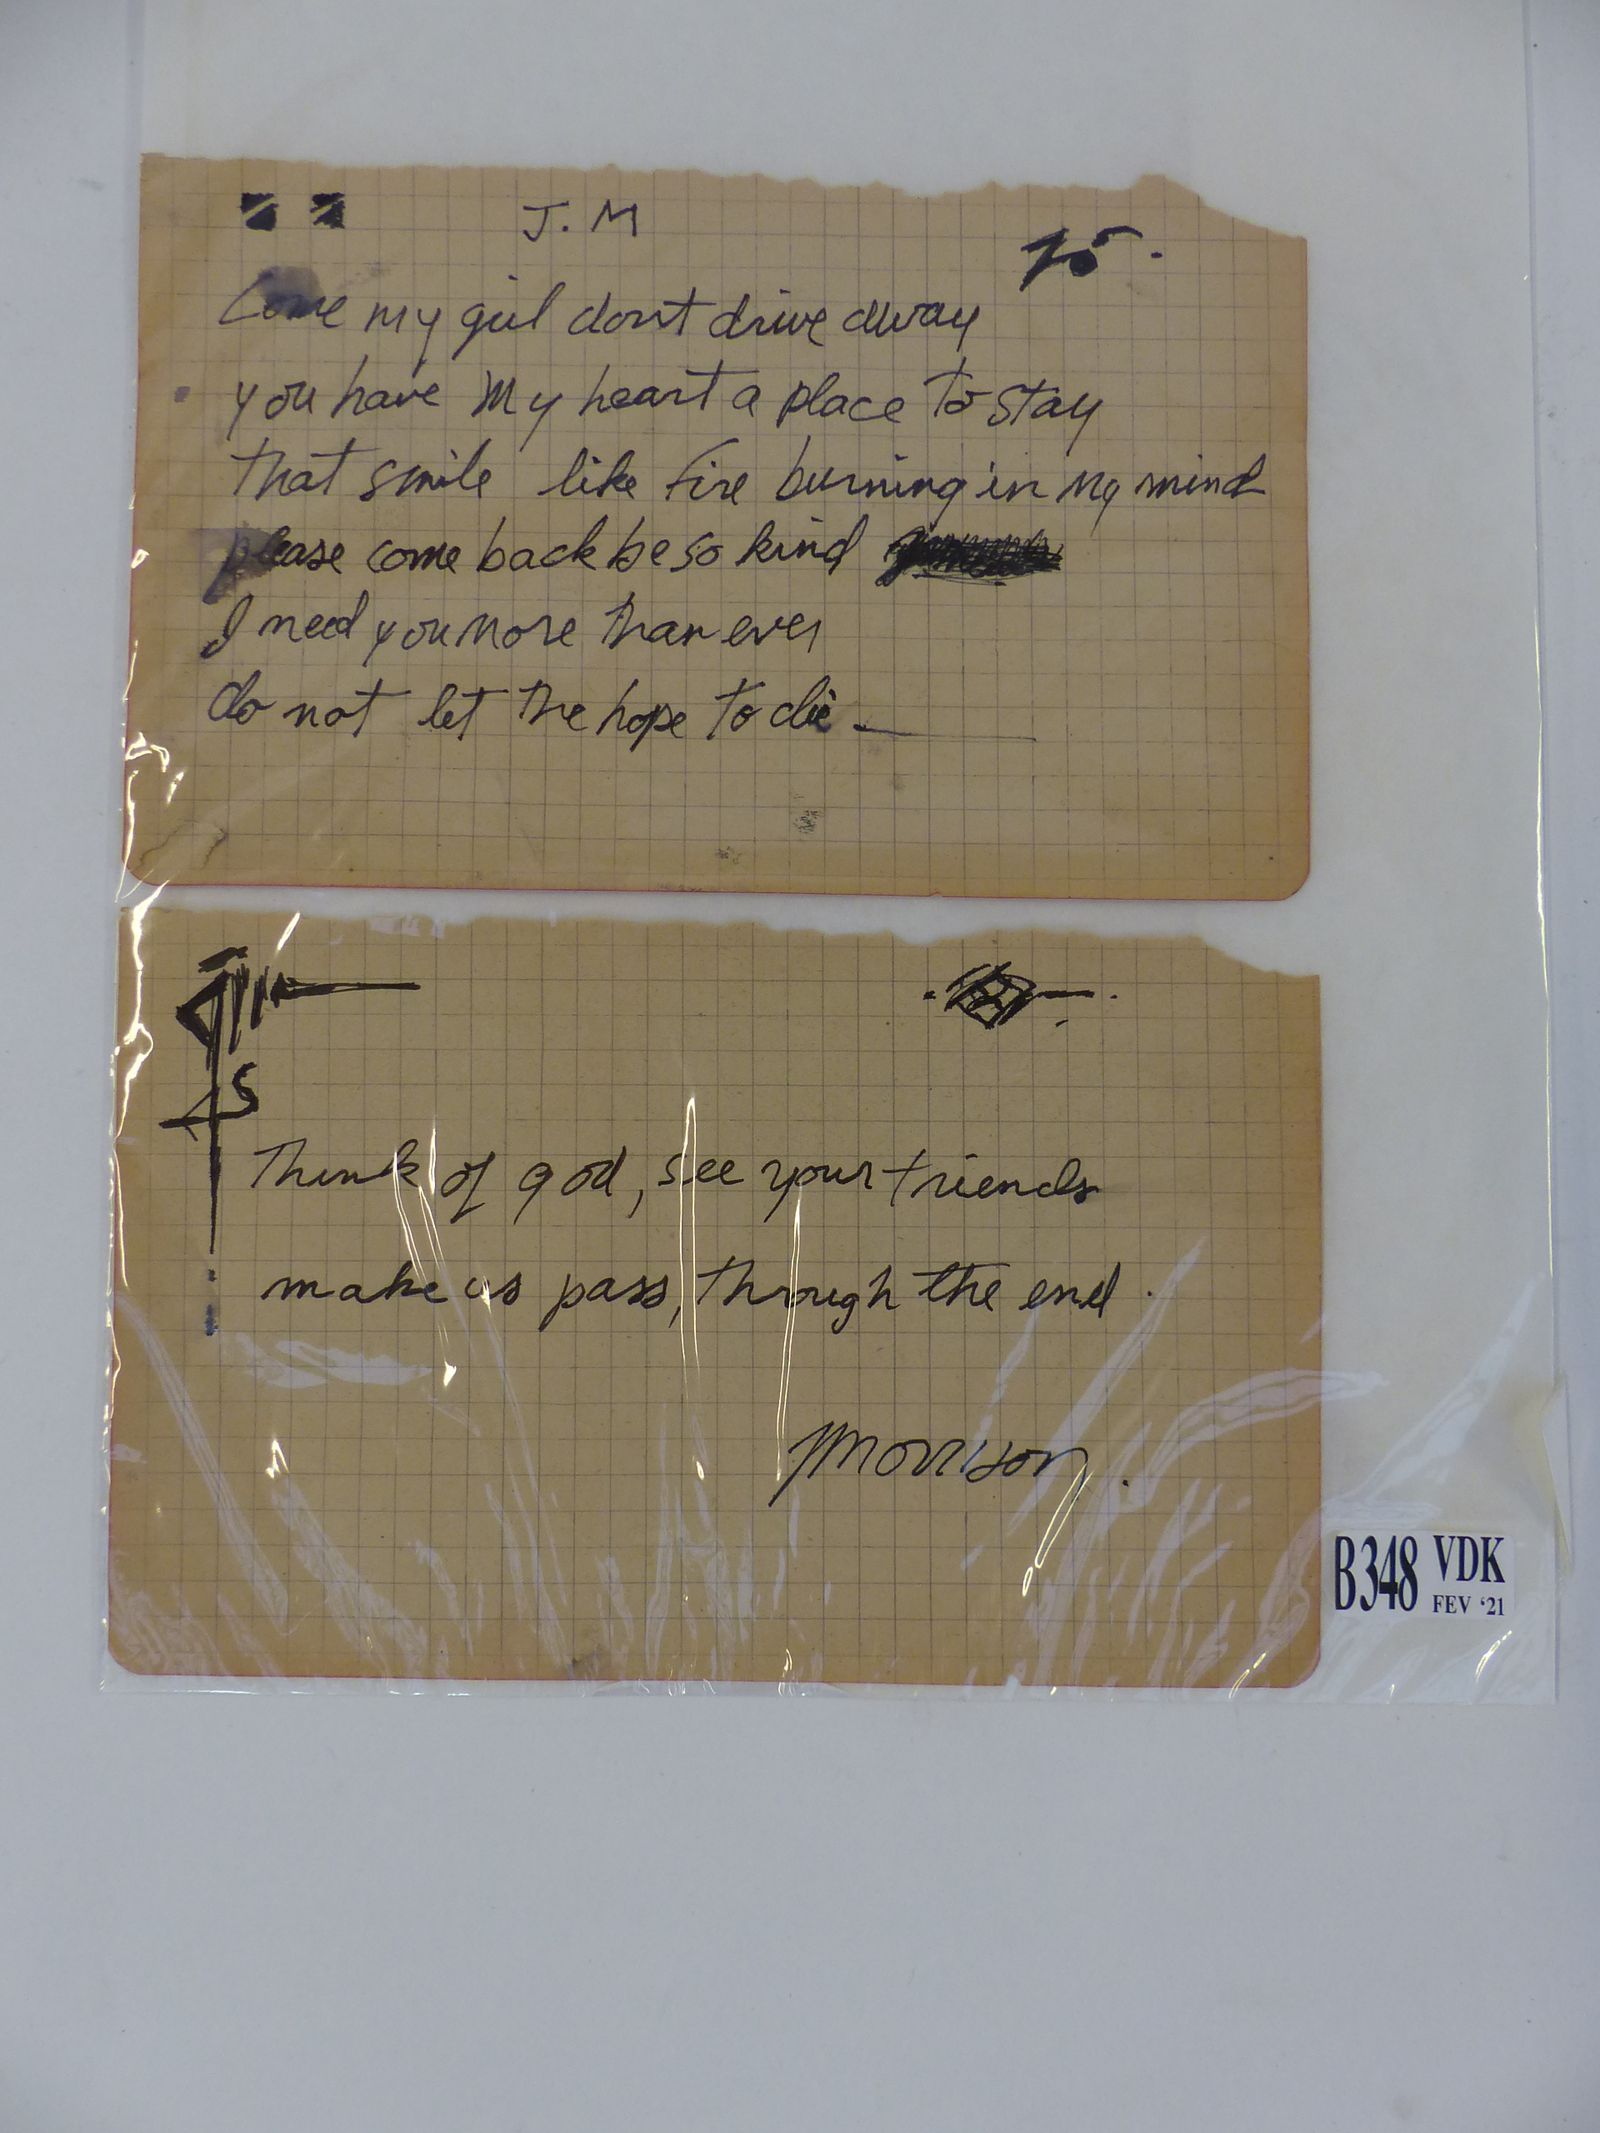 J. M
Come my girl dont drive away
you have my heart a place to stay
that smile like fire burning in my mind
please come back be so kind
I need you more than ever
do not let the hope to die
Think of god, see your friends
make us pass, through the end.
Morrison.
B348 VDK
FEV '21